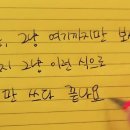 그냥 여기까지만 보
그냥 이런 식으로
판 쓰다 끝나요